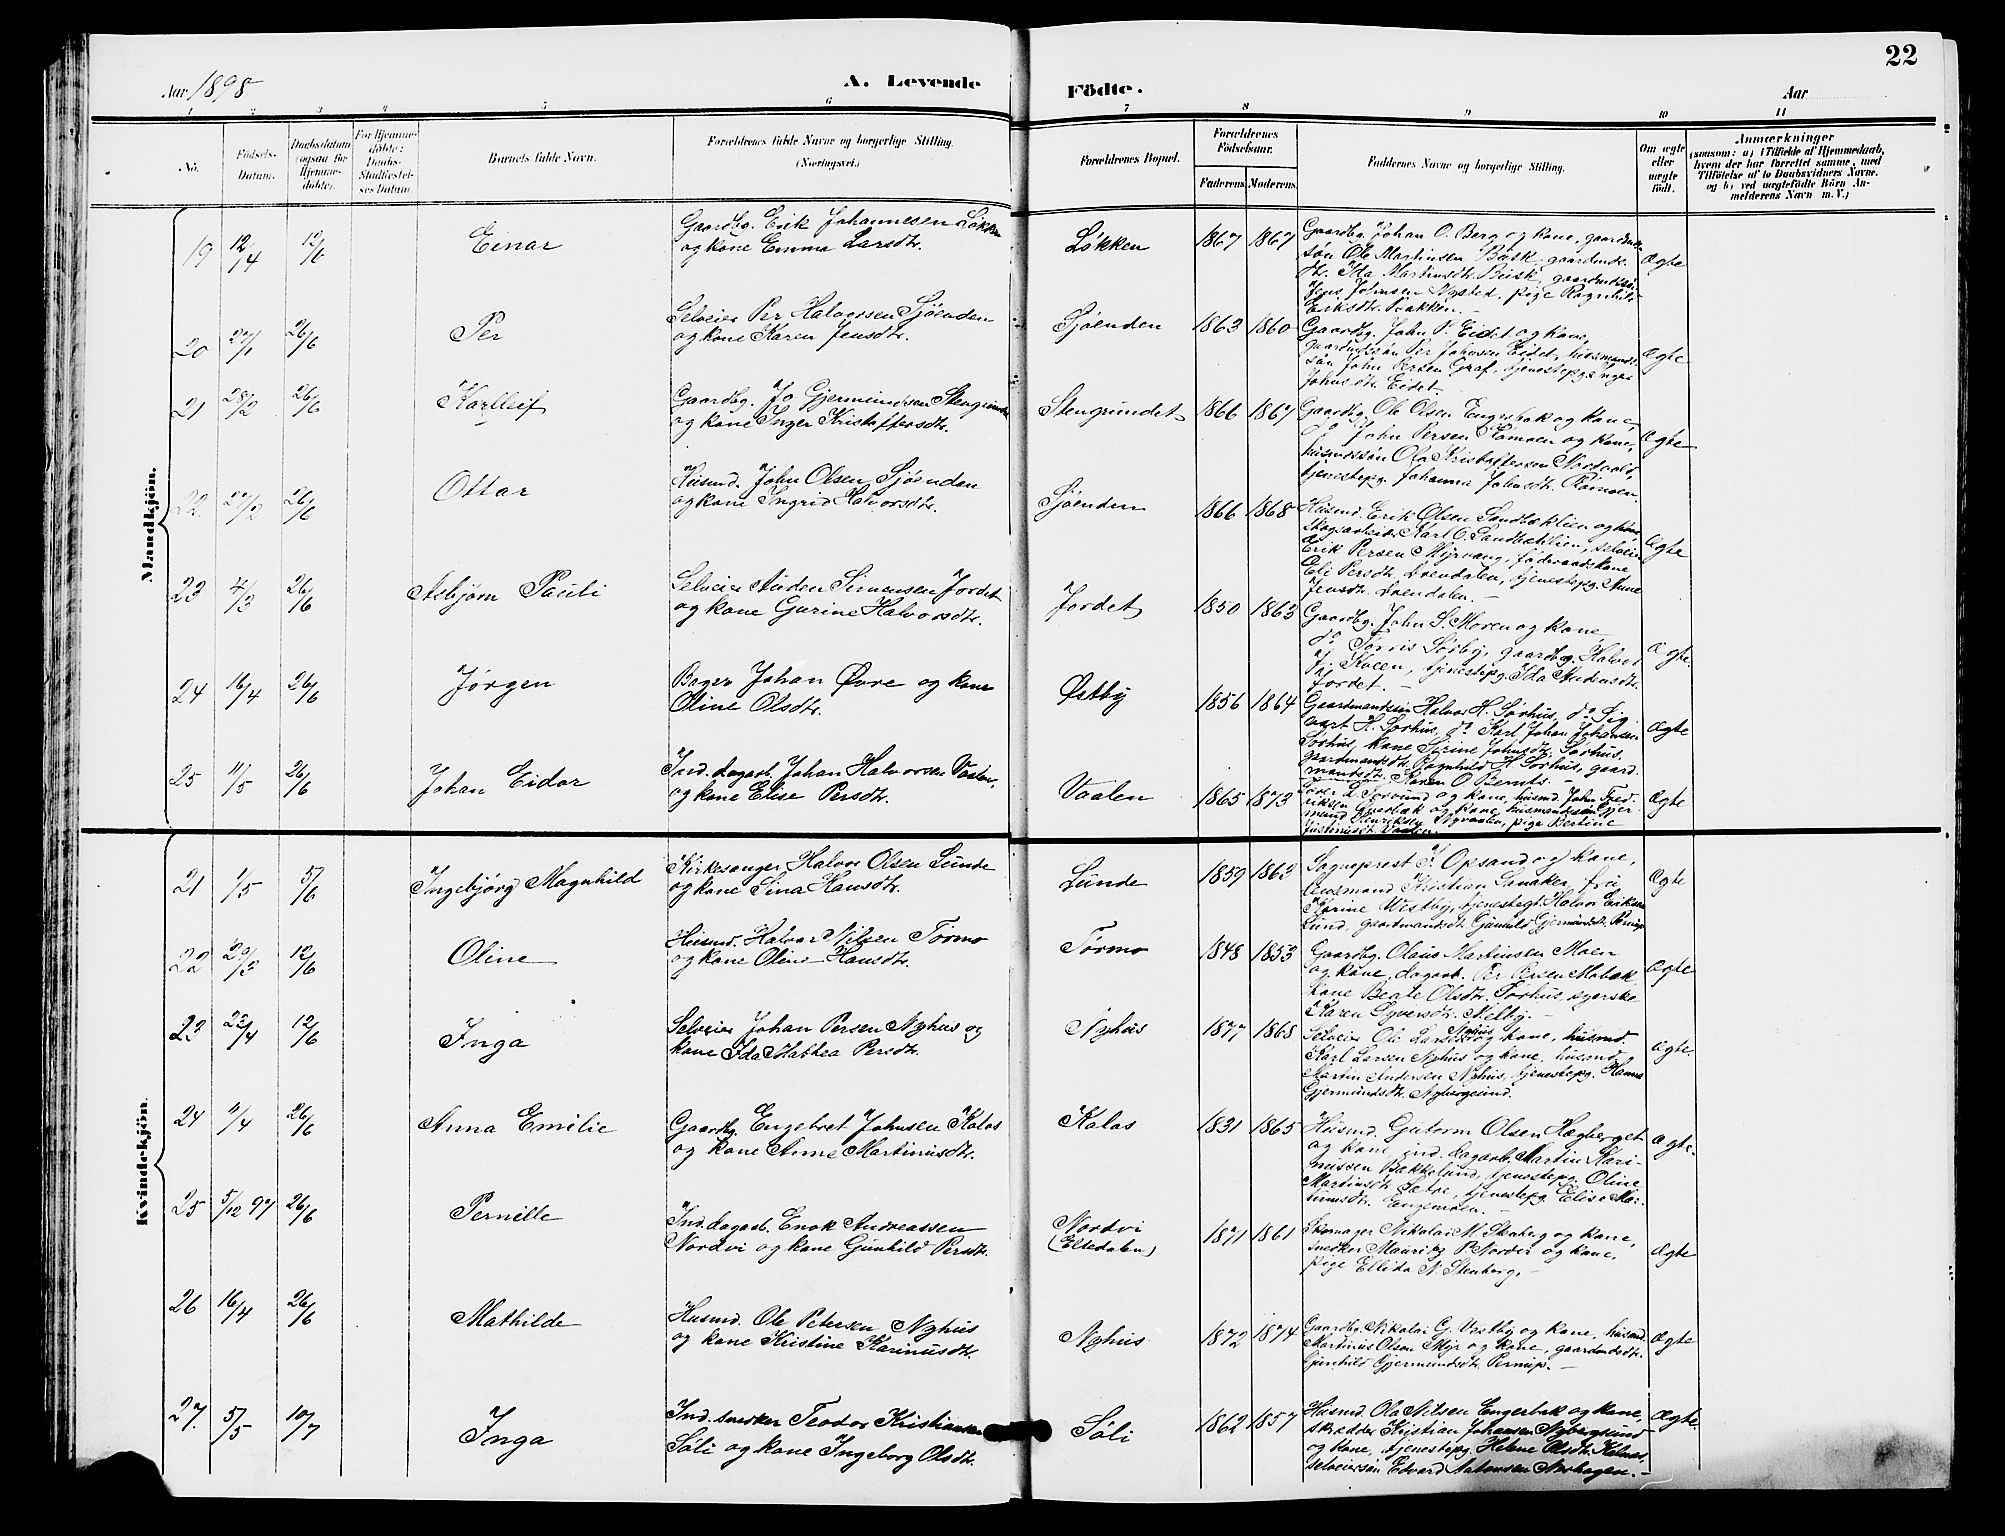 22
Aar 1898
A. Levende
Födte.
Aar
1 2 3 4 5 6 7 8 9 10 11
No.
Födsels-
Datum.
Daabsdatum
(ogsaa for
Hjemme-
döbte).
For Hjemme-
döbte:
Daabs-
Stadfæstel-
ses Datum.
Barnets fulde Navn.
Forældrenes fulde Navne og borgerlige Stilling.
(Næringsvei.)
Forældrenes Bopæl.
Forældrenes
Födselsaar.
Faderens. Moderens.
Faddernes Navne og borgerlige Stilling.
Om ægte
eller
uægte
födt.
Anmærkninger
(saasom: a) i Tilfælde af Hjemmedaab,
hvem der har forrettet samme, med
Tilföielse af to Daabsvidners Navne,
og b) ved uægtefödte Börn An-
melderens Navn m. V.)
Mandkjön.
19 12/4 12/6 Einar
Gaardbg. Erik Johannesen Løkken
og kone Emma Larsdtr.
Løkken 1867 1867
Gaardbg. Johan O. Berg og kone, gaardmds-
søn Ole Martinsen Busk, gaardmds.
dtr. Ida Martinsdtr. Busk, gaardmdssøn
Jens Johnsen Nysted, pige Ragnhild
Eriksdtr. Bakken.
Ægte
20 27/1 26/6 Per
Selveier Per Halvorsen Sjøenden
og kone Karen Jensdtr.
Sjøenden 1863 1860
Gaardbg. John P. Eidet og kone,
gaardmdssøn Per Johnsen Eidet, husmands-
søn John Persen Graf, tjenestepg. Inger
Johnsdtr. Eidet
Ægte
21 28/2 26/6 Karlleif
Gaardbg. Jo Gjermundsen Stengrundet
og kone Inger Kristoffersdtr.
Stengrundet 1866 1867
Gaardbg. Ole Olsen Engerbak og kone,
do John Persen Rømoen og kone,
husmdssøn Ola Kristoffersen Nordvold,
tjenestepg. Johanna Johnsdtr. Rømoen.
Ægte
22. 27/2 26/6 Ottar
Husmd. John Olsen Sjøenden
og kone Ingrid Halvorsdtr.
Sjøenden 1866 1868
Husmd. Erik Olsen Sandbæklien og kone
skogsarbeider Karl O. Sandbæklien, selveier
Erik Persen Myrvang, føderaadskone
Eli Persdtr. , tjenestepg. Anne
Jensdtr.
Ægte
23 4/3 26/6 Asbjørn Pauli
Selveier Auden Simensen Jordet
og kone Gurine Halvorsdtr.
Jordet 1850 1863
Gaardbg. John S. Moren og kone
do Torris Sørby, gaardbg. Halvor
J. Kveen, tjenestepg. Ida Audensdtr.
Jordet.
Ægte.
24 16/4 26/6 Jørgen
Bager Johan Øvre og kone
Oline Olsdtr.
Østby 1856 1864
Gaardmandssøn Halvor H. Sørhus, do Sig-
vart H. Sørhus, do Karl Johan Johansen
Sørhus, kone Sirine Johnsdtr. Sørhus,
gaardmandsdtr. Ragnhild H. Sørhus, gaard-
mandsdtr. Karen O. Bernts.
Ægte
25 11/5 26/6 Johan Eidar
Ind. dagarb. Johan Halvorsen Vaalen,
og kone Elise Persdtr.
Vaalen 1865 1873
og kone, husmd. John Fred-
riksen og kone, husmandssøn Gjer-
mund pige Bertine
Vaalen.
Ægte
Kvindekjön.
21 1/5 5/6 Ingebjørg Magnhild
Kirkesanger Halvor Olsen Lunde
og kone Sina Hansdtr.
Lunde 1859 1863
Sogneprest K. Opsand og kone,
lensmand Kristian Sanaker, frk.
Karine Westby, tjenestegt. Halvor Eriksen
Lund, gaardmandsdtr. Gunhild Gjermundsdtr. Pernup.
Ægte
22 29/3 12/6 Oline
Husmd. Halvor Nilsen Tørmo
og kone Oline Hansdtr.
Tørmo 1848 1853
Gaardbg. Olaus Martinsen Moen
og kone, dagarb. Per Persen Mobæk,
kone Beate Olsdtr. Sørhus, syerske
Karen Syversdtr. Melby.
Ægte
23 23/4 12/6 Inga
Selveier Johan Persen Nyhus og
kone Ida Mathea Persdtr.
Nyhus 1877 1868
Selveier Ole Larsen Nyhus og kone, husmd.
Karl Larsen Nyhus og kone, husmd.
Martin Andersen Nyhus, tjenestepg. Hanna
Gjermundsdtr. Nybergsund.
Ægte.
24 9/4 26/6 Anna Emilie
Gaardbg. Engebret Johnsen Kolos
og kone Anne Martinusdtr.
Kolos 1831 1865
Husmd. Gutorm Olsen Hægberget
og kone, ind. dagarb. Martin Kari-
nussen Bakkelund, tjenestepg. Oline
Martinsdtr. Sætre, tjenestepg. Elise Mar-
tinusdtr. Engemoen.
Ægte.
25 5/12 97 26/6 Pernille
Ind. dagarb. Enok Andreassen
Nordvi og kone Gunhild Persdtr.
Nordvi
(Eltedalen)
1871 1861
Skomager Nikolai M. Skoberg og kone,
snedker Mauritz P. Norder og kone,
pige Ellida N. Stenberg.
Ægte
26 16/4 26/6 Mathilde
Husmd. Ole Petersen Nyhus
og kone Kristine Karinusdtr.
Nyhus 1872 1874
Gaardbg. Nikolai G. Vestby og kone, husmd.
Martinus Olsen Myr og kone, gaardmdsdtr.
Gunhild Gjermundsdtr. Pernup.
Ægte
27. 5/5 10/7 Inga
Ind. snedker Teodor Kristiansen
Søli og kone Ingeborg Olsdtr.
Søli 1862 1857
Husmd. Ola Nilsen Engerbak og kone,
skrædder Kristian Johansen Nybergsund
og kone, tjenestepg. Helene Olsdtr. Kolos,
selveiersøn Edvard Aslaksen Norhagen.
Ægte.